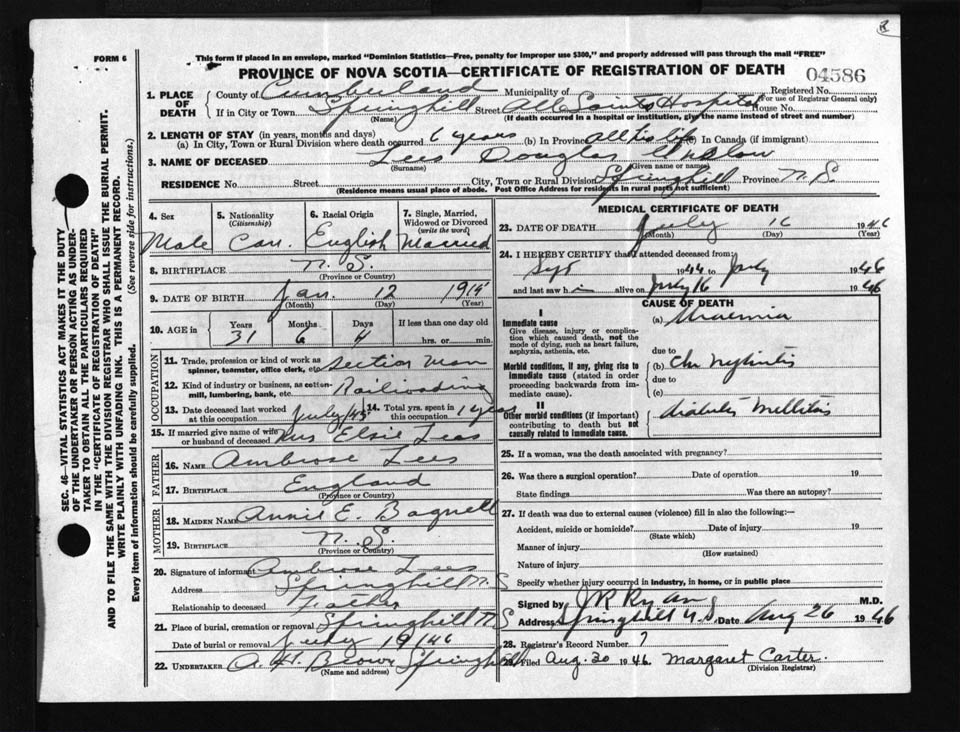 R
FORM 6
This form if placed in an envelope, marked "Dominion Statistics—Free, penalty for improper use $300," and properly addressed will pass through the mail "FREE"
PROVINCE OF NOVA SCOTIA—CERTIFICATE OF REGISTRATION OF DEATH 04586
SEC. 46—VITAL STATISTICS ACT MAKES IT THE DUTY
OF THE UNDERTAKER OR PERSON ACTING AS UNDER-
TAKER TO OBTAIN ALL THE PARTICULARS REQUIRED
IN THE "CERTIFICATE OF REGISTRATION OF DEATH"
AND TO FILE THE SAME WITH THE DIVISION REGISTRAR WHO SHALL ISSUE THE BURIAL PERMIT.
WRITE PLAINLY WITH UNFADING INK. THIS IS A PERMANENT RECORD.
Every item of information should be carefully supplied. (See reverse side for instructions.)
1. PLACE OF DEATH County of Cumberland Municipality of Registered No.
(For use of Registrar General only)
If in City or Town Springhill Street All Saints Hospital House No.
(Name) (If death occurred in a hospital or institution, give the name instead of street and number)
2. LENGTH OF STAY (in years, months and days)
(a) In City, Town or Rural Division where death occurred 6 years (b) In Province all his life (c) In Canada (if immigrant)
3. NAME OF DECEASED Lees Douglas
(Surname) (Given name or names)
RESIDENCE No. Street City, Town or Rural Division Springhill Province N.S.
(Residence means usual place of abode. Post Office Address for residents in rural parts not sufficient)
4. Sex Male
5. Nationality (Citizenship) Can.
6. Racial Origin English
7. Single, Married, Widowed or Divorced (write the word) Married
8. BIRTHPLACE N.S.
(Province or Country)
9. DATE OF BIRTH Jan. 12 1915
(Month) (Day) (Year)
10. AGE in Years Months Days If less than one day old
31 6 4 hrs. or min.
OCCUPATION
11. Trade, profession or kind of work as spinner, teamster, office clerk, etc. Section Man
12. Kind of industry or business, as cotton-mill, lumbering, bank, etc. Railroading
13. Date deceased last worked at this occupation July/45 14. Total yrs. spent in this occupation 1 year
15. If married give name of wife or husband of deceased Mrs Elsie Lees
FATHER
16. NAME Ambrose Lees
17. BIRTHPLACE England
(Province or Country)
MOTHER
18. MAIDEN NAME Annie E. Bagnell
19. BIRTHPLACE N.S.
(Province or Country)
20. Signature of informant Ambrose Lees
Address Springhill N.S
Relationship to deceased Father
21. Place of burial, cremation or removal Springhill N.S
Date of burial or removal July 19 1946
22. UNDERTAKER A. H. Brown Springhill
(Name and address)
MEDICAL CERTIFICATE OF DEATH
23. DATE OF DEATH July 16 1946
(Month) (Day) (Year)
24. I HEREBY CERTIFY that I attended deceased from:
Sept 1944 to July 1946
and last saw h im alive on July 16 1946
CAUSE OF DEATH
I
Immediate cause
Give disease, injury or complication which caused death, not the mode of dying, such as heart failure, asphyxia, asthenia, etc.
(a) Uraemia
due to
Morbid conditions, if any, giving rise to immediate cause (stated in order proceeding backwards from immediate cause).
(b) Chr Nephritis
due to
(c)
II
Other morbid conditions (if important) contributing to death but not causally related to immediate cause.
Diabetes Mellitus
25. If a woman, was the death associated with pregnancy?
26. Was there a surgical operation? Date of operation 19
State findings Was there an autopsy?
27. If death was due to external causes (violence) fill in also the following:—
Accident, suicide or homicide? Date of injury 19
(State which)
Manner of injury
(How sustained)
Nature of injury
Specify whether injury occurred in industry, in home, or in public place
Signed by J R Ryan M.D.
Address Springhill N.S Date Aug 26 1946
28. Registrar's Record Number 7
29. Filed Aug. 30 1946. Margaret Carter.
(Division Registrar)